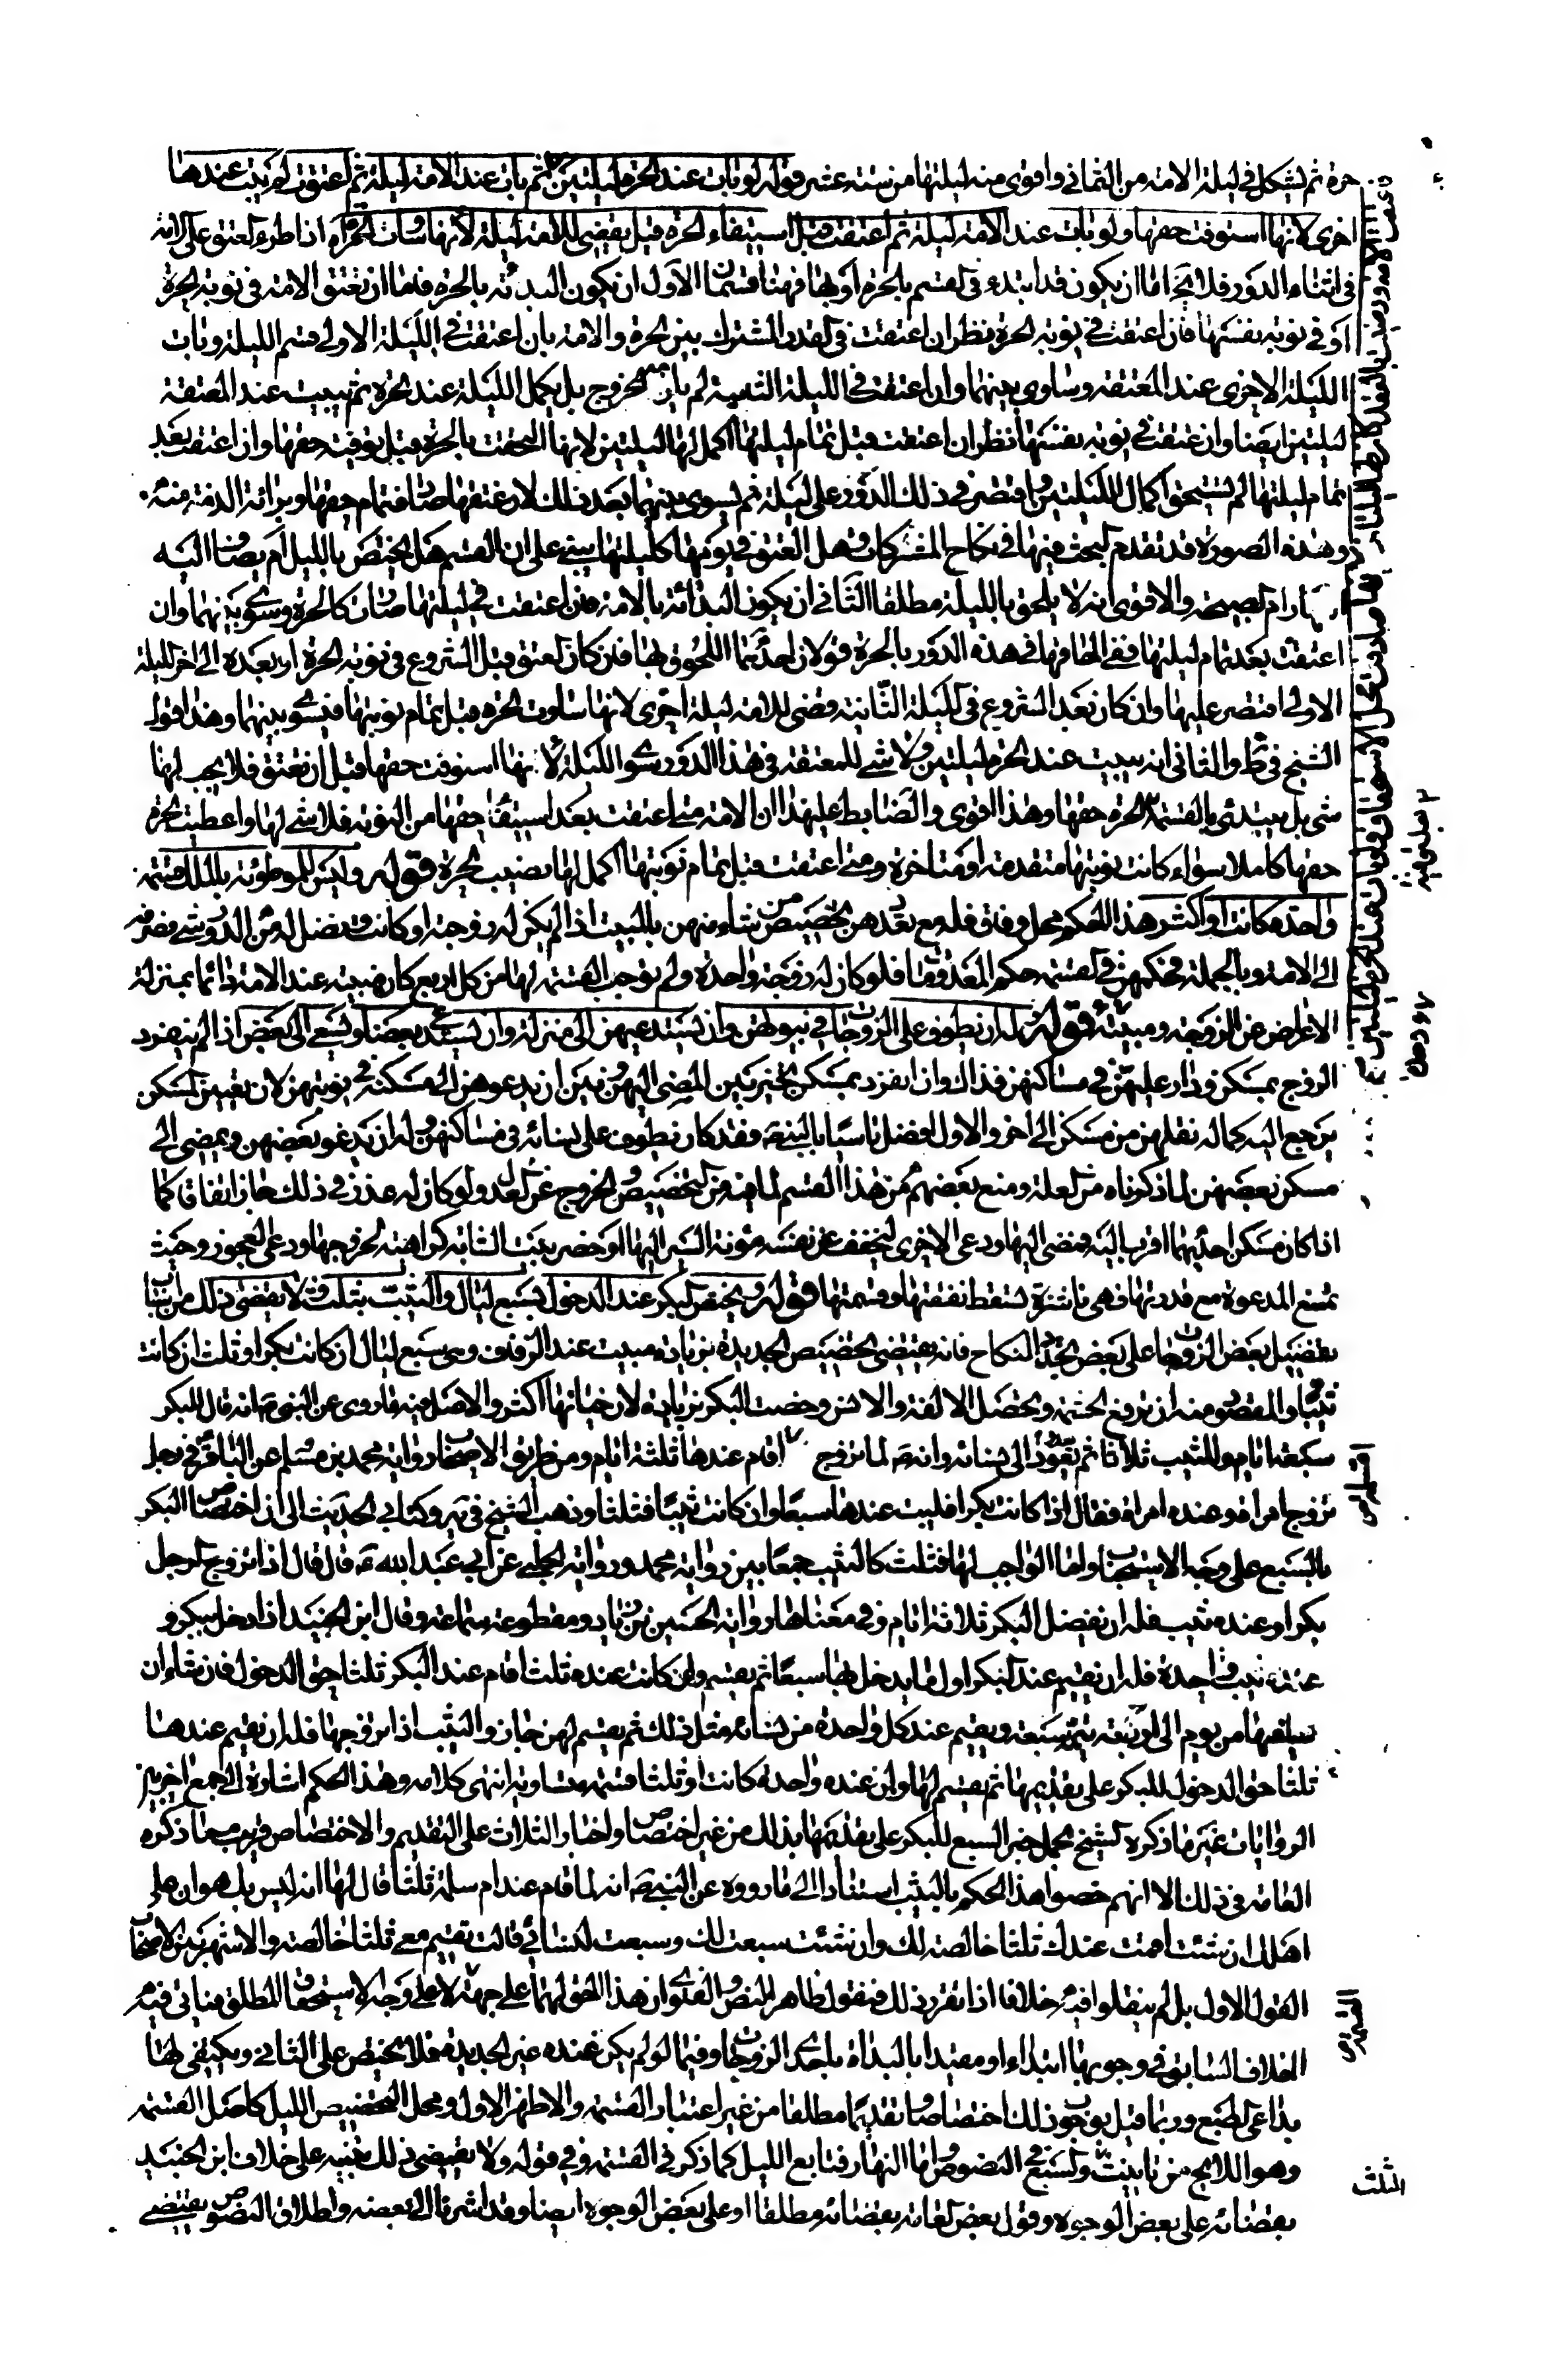 حرة ثم يشكل في ليلة الامة من الثماني واقوى منه ليلتها من ستة عشر قوله لو بات عند الحرة ليلتين ثم بات عند الامة ليلة ثم اعتقت لم يبت عندها
اخرى لانها استوفت حقها ولو بات عند الامة ليلة ثم اعتقت قبل استيفاء الحرة قيل يقضى للامة ليلة لانها ساوت الحرة اذا طرء العتق على الامة
في اثناء الدور فلا يخ اما ان يكون قد ابتدء في القسم بالحرة او بها فهنا قسمان الاول ان يكون البدئة بالحرة فاما ان تعتق الامة في نوبة الحرة
او في نوبة نفسها فان اعتقت في نوبة الحرة نظر ان اعتقت في القدر المشترك بين الحرة والامة بان اعتقت في الليلة الاولى قسم الليلة وبات
الليلة الاخرى عند المعتقة وساوى بينهما وان اعتقت في الليلة الثانية لم يلزمه الخروج بل يكمل الليلة عند الحرة ثم يبيت عند المعتقة
ليلتين ايضا وان عتقت في نوبة نفسها نظر ان اعتقت قبل تمام ليلتها اكمل لها ليلتين لانها التحقت بالحرة قبل توفية حقها وان اعتقت بعد
تمام ليلتها لم تستحق اكمال الليلتين واقتصر في ذلك الدور على ليلة ثم يسوى بينهما بعد ذلك لان عتقها صادف تمام حقها وبرائة الذمة منه
وهذه الصورة قد تقدم البحث فيها في نكاح المشركات وهل العتق في يومها كليلتها يبنى على ان القسم هل يختص بالليل ام يضاف اليه
والاقوى انه لا يلحق بالليلة مطلقا الثاني ان يكون البدائة بالامة فان اعتقت في ليلتها صارت كالحرة وسوى بينهما وان
اعتقت بعد تمام ليلتها ففي الحاقها في هذه الدور بالحرة قولان احدهما اللحوق بها فان كان العتق قبل الشروع في نوبة الحرة او بعده الى اخر الليلة
الاولى اقتصر عليها وان كان بعد الشروع في الليلة الثانية قضى للامة ليلة اخرى لانها ساوت الحرة قبل تمام نوبتها فيسوى بينهما وهذا قول
الشيخ في ط والثاني انه يبيت عند الحرة ليلتين ولا شئ للمعتقة في هذا الدور سوى الليلة لانها استوفت حقها قبل ان تعتق فلا يجب لها
شئ بل يبتدئ بالقسمة الحرة حقها وهذا اقوى والضابط على هذا ان الامة متى اعتقت بعد استيفاء حقها من النوبة فلا شئ لها واعطيت الحرة
حقها كاملا سواء كانت نوبتها متقدمة او متاخرة ومتى اعتقت قبل تمام نوبتها اكمل لها نصيب الحرة قوله وليس للموطوئة بالملك قسمة
واحدة كانت او اكثر هذا الحكم محل وفاق فله مع تعددهن تخصيص من شاء منهن بالمبيت اذا لم يكن له زوجة او كانت وفضل له من الدور شئ فصرفه
الى الامة وبالجملة فحكمهن في القسمة حكم المعدوم فلو كان له زوجة واحدة ولم نوجب القسمة لها من كل اربع كان مبيته عند الامة دائما بمنزلة
الاعراض عن الزوجة ومبيته قوله له ان يطوف على الزوجات في بيوتهن وان يستدعيهن الى منزله وان يستدعي بعضا ويسعى الى بعض اذا لم ينفرد
الزوج بمسكن ودار عليهن في مساكنهن فذاك وان انفرد بمسكن تخير بين المضي اليهن وبين ان يدعوهن الى مسكنه في نوبتهن لان تعيين المسكن
يرجع اليه كما له نقلهن من مسكن الى اخر والاول افضل تاسيا بالنبي ص فقد كان يطوف على نسائه في مساكنهن وله ان يدعو بعضهن ويمضى الى
مسكن بعضهن لما ذكرناه من العلة ومنع بعضهم من هذا القسم لما فيه من التخصيص والخروج عن العدل ولو كان له عذر في ذلك جاز اتفاقا كما
اذا كان مسكن احديهما اقرب اليه فمضى اليها ودعى الاخرى ليخفف عن نفسه مؤنة السير اليها او حضر بيت الشابة كراهية لخروجها ودعى العجوز وحيث
تمتنع المدعوة مع قدرتها فهي ناشزة تسقط نفقتها وقسمتها قوله ويختص البكر عند الدخول بسبع ليال والثيب بثلث ولا يقضى ذلك من اسباب
تفضيل بعض الزوجات على بعض تجدد النكاح فانه يقتضى تخصيص الجديدة بزيادة مبيت عند الزفاف وهي سبع ليال ان كانت بكرا وثلث ان كانت
ثيبا والمقصود منه ان ترفع الحشمة ويحصل الالفة والانس وخصت البكر بزيادة لان حياءها اكثر والاصل فيه ما روى عن النبي ص انه قال للبكر
سبعة ايام وللثيب ثلاثا ثم يعود الى نسائه وانه ص لما تزوج اقام عندها ثلثة ايام ومن طريق الاصحاب رواية محمد بن مسلم عن الباقر في رجل
تزوج امراة وعنده امراة فقال اذا كانت بكرا فليبت عندها سبعا وان كانت ثيبا فثلثا وذهب الشيخ في يه وكتابي الحديث الى ان اختصاص البكر
بالسبع على وجه الاستحباب واما الواجب لها فثلث كالثيب جمعا بين رواية محمد ورواية الحلبي عن ابي عبد الله ع قال قال اذا تزوج الرجل
بكرا وعنده ثيب فله ان يفضل البكر ثلاثة ايام وفي معناها رواية الحسين بن زياد ومقطوعة سماعة وقال ابن الجنيد اذا دخل ببكر و
عنده ثيب واحدة فله ان يقيم عند البكر اول ما يدخل بها سبعا ثم يقسم وان كانت عنده ثلث اقام عند البكر ثلثا حق الدخول فان شاء ان
يسلفها من يوم الى اربعة تتمة سبعة ويقيم عند كل واحدة من نسائه مثل ذلك ثم يقسم لهن جاز والثيب اذا تزوجها فله ان يقيم عندها
ثلثا حق الدخول للبكر على تقديمها ثم يقسم لها ولمن عنده واحدة كانت او ثلثا قسمة متساوية انتهى كلامه وهذا الحكم اشارة الى جمع اخر بين
الروايات غير ما ذكره الشيخ بحمل خبر السبع للبكر على تقديمها بذلك من غير اختصاص واخبار الثلاث على التقديم والاختصاص وقريب مما ذكره
العامة في ذلك الا انهم خصوا هذا الحكم بالثيب استنادا الى ما رووه عن النبي ص انه لما اقام عند ام سلمة ثلثا قال لها انه ليس بك هوان على
اهلك ان شئت اقمت عندك ثلثا خالصة لك وان شئت سبعت لك وسبعت لنسائي قالت تقيم معي ثلثا خالصة والاشهر بين الاصحاب
القول الاول بل لم ينقلوا فيه خلافا اذا تقرر ذلك فنقول ظاهر النص والفتوى ان هذا الحق لهما على جهة لا على وجه الاستحقاق المطلق فياتي فيه
الخلاف السابق في وجوبها ابتداء او مقيدا بالبداة باحدى الزوجات وفيما لو لم يكن عنده غير الجديدة فلا يختص على الثاني ويكتفى لها
بداعي الطبع وربما قيل بوجوب ذلك اختصاصا وتقديما مطلقا من غير اعتبار القسمة والاظهر الاول ومحل التخصيص الليل كاصل القسمة
وهو اللايح من تانيث وسبع في النصوص واما النهار فتابع الليل كما ذكر في القسمة وفي قوله ولا يقضى ذلك تنبيه على خلاف ابن الجنيد
بقضائه على بعض الوجوه وقول بعض العامة بقضائه مطلقا او على بعض الوجوه ايضا وقد اشرنا الى بعضه واطلاق النصوص يقتضى
الثلث